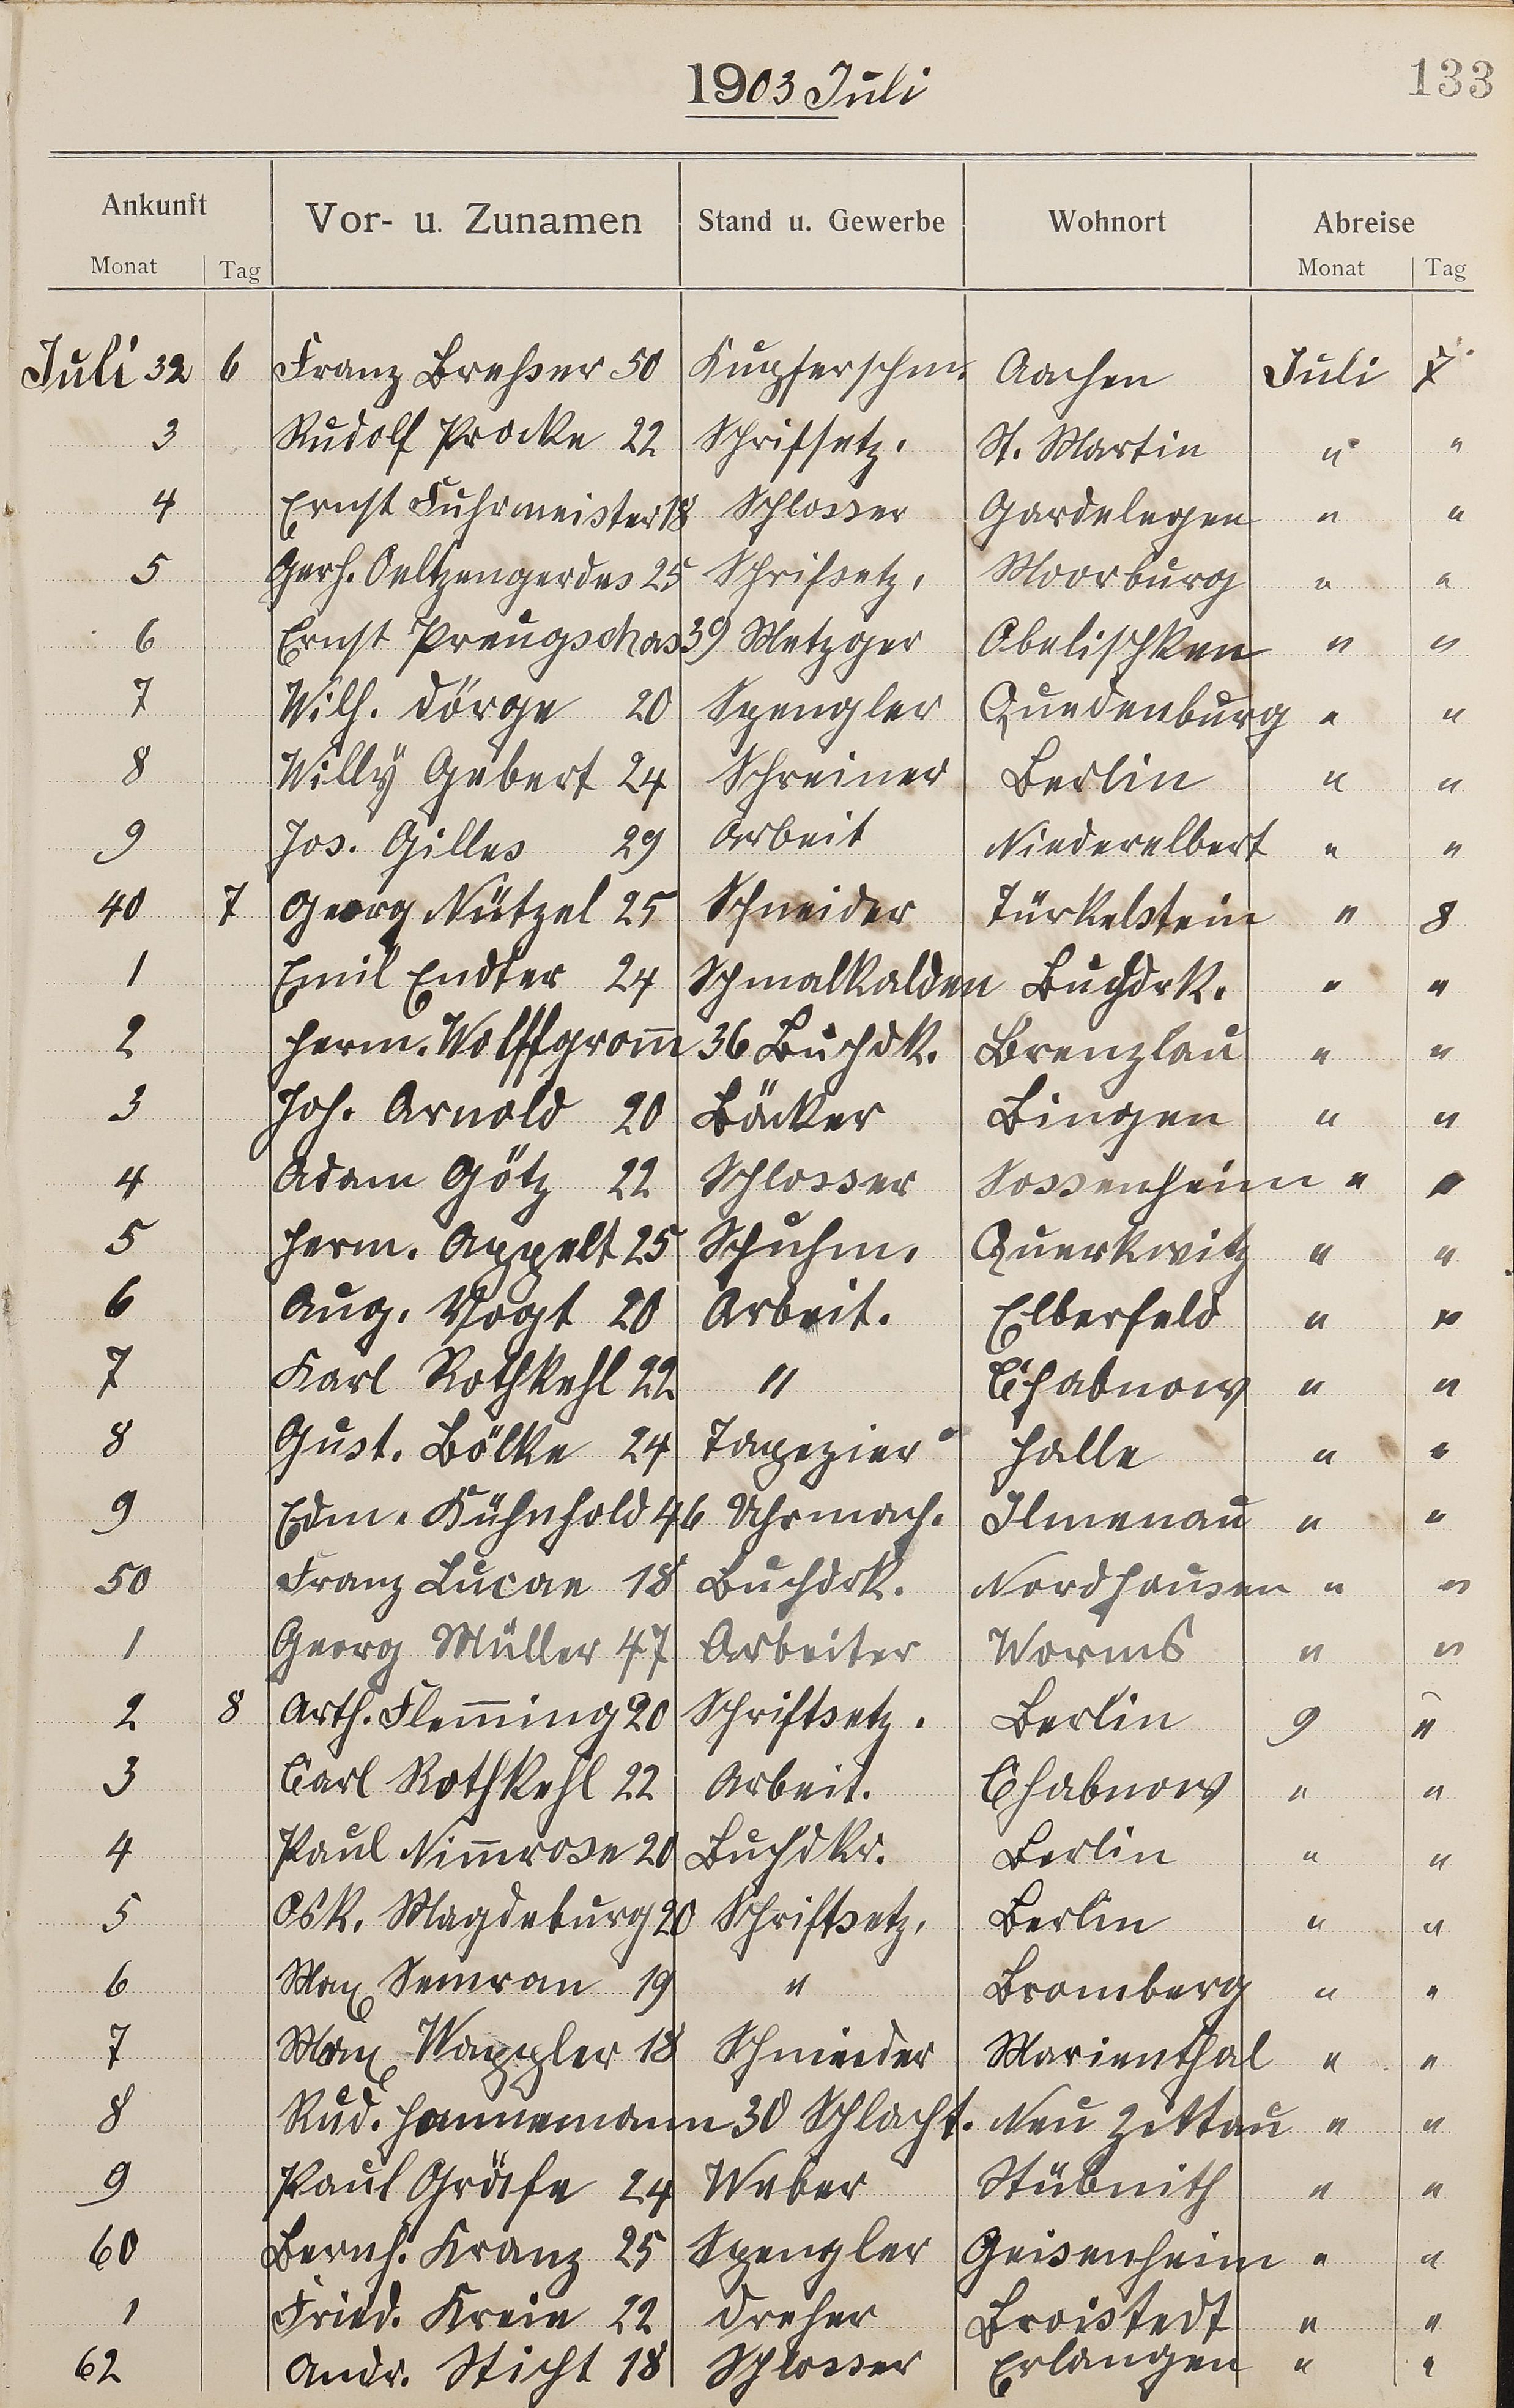 1903 Juli
133
Ankunft Vor- u. Zunamen Stand u. Gewerbe Wohnort Abreise
Monat Tag Monat Tag
Juli 32 6 Franz Breßer 50 Kupferschm. Aachen Juli 7
3 Rudolf Procke 22 Schrifsetz. St. Martin " "
4 Ernst Fuhrmeister 18 Schlosser Gardelegen " "
5 Gerh. Oeltzengerdes 25 Schrifsetz. Moorburg " "
6 Ernst Preugschas 39 Metzger Abelischken " "
7 Wilh. Dörge 20 Spengler Quedenburg " "
8 Willy Gebert 24 Schreiner Berlin " "
9 Jos. Gilles 29 Arbeit Niederelbert " "
40 7 Georg Nützel 25 Schneider Türkelstein " 8
1 Emil Endter 24 Schmalkalden Buchdrk. " "
2 Herm. Wolffgram̅ 36 Buchdk. Brenzlau " "
3 Joh. Arnold 20 Bäcker Bingen " "
4 Adam Götz 22 Schlosser Sossenheim " "
5 Herm. Appelt 25 Schuhm. Querkwitz " "
6 Aug. Vogt 20 Arbeit. Elberfeld " "
7 Karl Rothkehl 22 " Chabnow " "
8 Gust. Bölke 24 Tapezier Halle " "
9 Edm. Kühnhold 46 Uhrmach. Ilmenau " "
50 Franz Lucae 18 Buchdrk. Nordhausen " "
1 Georg Müller 47 Arbeiter Worms " "
2 8 Arth. Flem̅ing 20 Schriftsetz. Berlin 9 "
3 Carl Rothkehl 22 Arbeit. Chabnow " "
4 Paul Nim̅rose 20 Buchdkr. Berlin " "
5 Osk. Magdeburg 20 Schriftsetz. Berlin " "
6 Max Semrau 19 " Bromberg " "
7 Max Wappler 18 Schmieder Marienthal " "
8 Rud. Hannemann 30 Schlacht. Neu Zittau " "
9 Paul Gräfe 24 Weber Stübnith " "
60 Bernh. Kranz 25 Spengler Geisenheim " "
1 Fried. Kreie 22 Dreher Broistedt " "
62 Andr. Sticht 18 Schlosser Erlangen " "